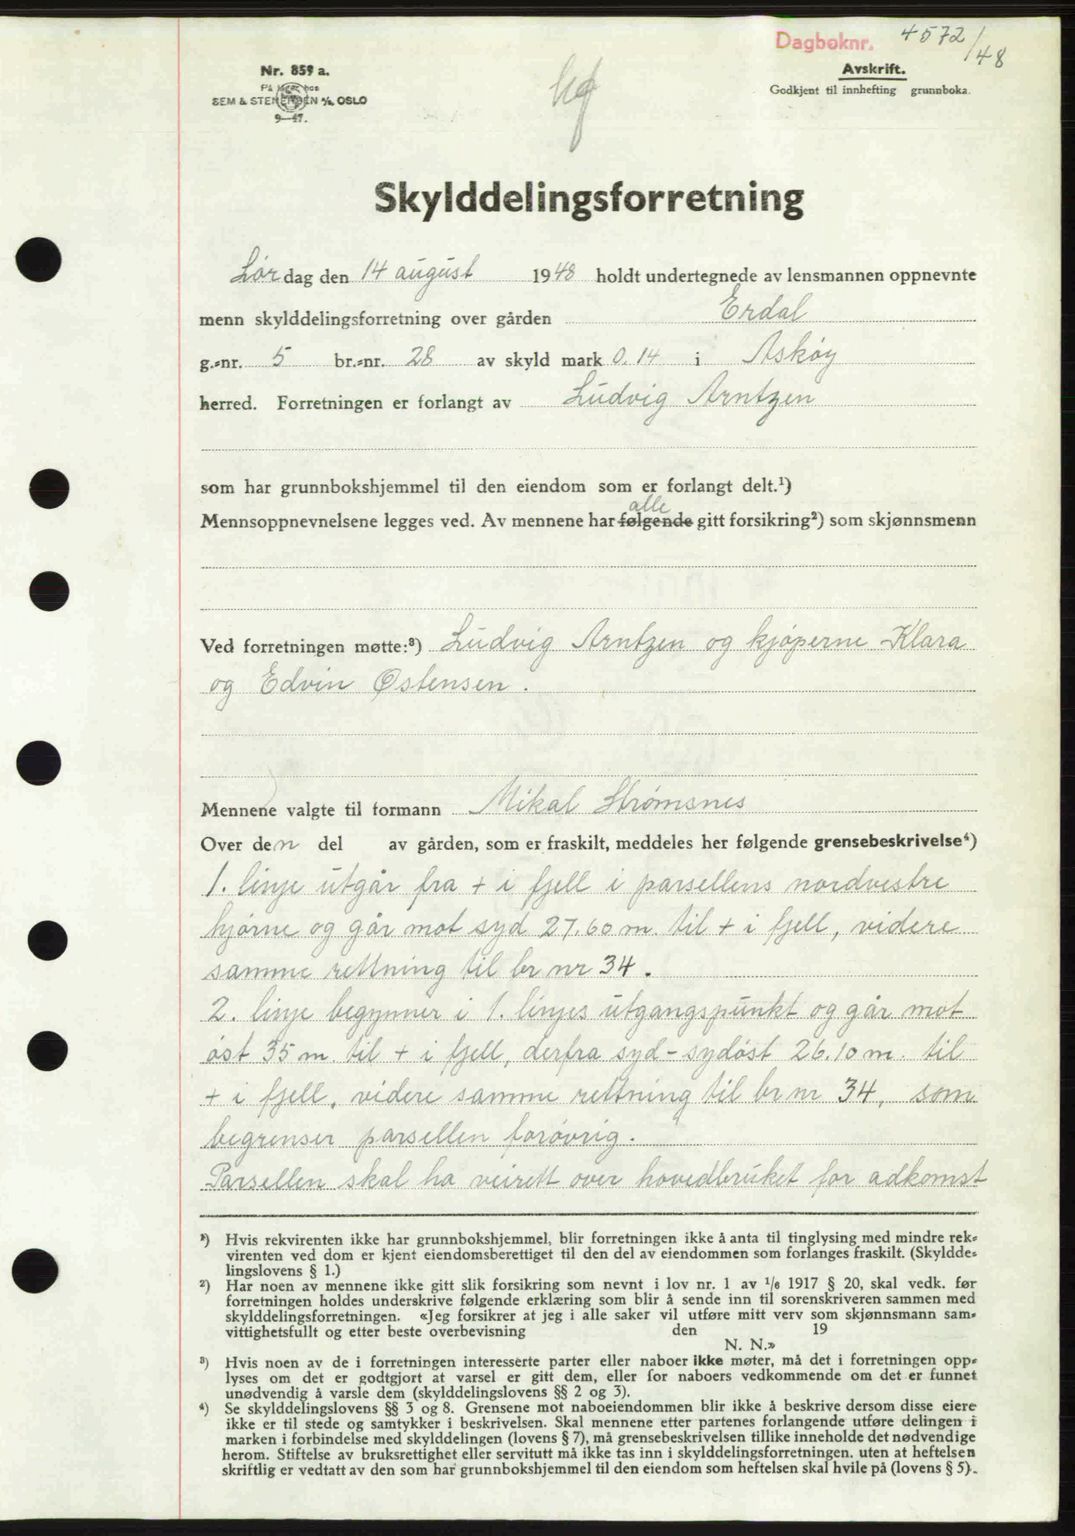 Dagboknr. 4572/48
Nr. 859 a.
På lager hos
SEM & STENERSEN A/S, OSLO
9—47.
Avskrift.
Godkjent til innhefting grunnboka.
Skylddelingsforretning
Lørdag den 14 august 1948 holdt undertegnede av lensmannen oppnevnte
menn skylddelingsforretning over gården Erdal
g.-nr. 5 br.-nr. 28 av skyld mark 0.14 i Askøy
herred. Forretningen er forlangt av Ludvig Arntzen
som har grunnbokshjemmel til den eiendom som er forlangt delt.¹)
alle
Mennsoppnevnelsene legges ved. Av mennene har følgende gitt forsikring²) som skjønnsmenn
Ved forretningen møtte:³) Ludvig Arntzen og kjøperne Klara
og Edvin Østensen.
Mennene valgte til formann Mikal Strømsnes
Over den del av gården, som er fraskilt, meddeles her følgende grensebeskrivelse⁴)
1. linje utgår fra + i fjell i parsellens nordvestre
hjørne og går mot syd 27.60 m. til + i fjell, videre
samme rettning til br nr 34.
2. linje begynner i 1. linjes utgangspunkt og går mot
øst 35 m til + i fjell, derfra syd-sydøst 26.10 m. til
+ i fjell, videre samme rettning til br nr 34, som
begrenser parsellen forøvrig.
Parsellen skal ha veirett over hovedbruket for adkomst
¹) Hvis rekvirenten ikke har grunnbokshjemmel, blir forretningen ikke å anta til tinglysing med mindre rek-
virenten ved dom er kjent eiendomsberettiget til den del av eiendommen som forlanges fraskilt. (Skyldde-
lingslovens § 1.)
²) Har noen av mennene ikke gitt slik forsikring som nevnt i lov nr. 1 av 1/6 1917 § 20, skal vedk. før
forretningen holdes underskrive følgende erklæring som blir å sende inn til sorenskriveren sammen med
skylddelingsforretningen. «Jeg forsikrer at jeg i alle saker vil utføre mitt verv som skjønnsmann sam-
vittighetsfullt og etter beste overbevisning den 19
N. N.»
³) Hvis noen av de i forretningen interesserte parter eller naboer ikke møter, må det i forretningen opp-
lyses om det er godtgjort at varsel er gitt dem, eller for naboers vedkommende om det er funnet
unødvendig å varsle dem (skylddelingslovens §§ 2 og 3).
⁴) Se skylddelingslovens §§ 3 og 8. Grensene mot naboeiendommen blir ikke å beskrive dersom disse eiere
ikke er til stede og samtykker i beskrivelsen. Skal mennene etter partenes forlangende utføre delingen i
marken i forbindelse med skylddelingen (lovens § 7), må grensebeskrivelsen tillike inneholde det nødvendige
herom. Stiftelse av bruksrettighet eller servitutt må ikke tas inn i skylddelingsforretningen. uten at heftelsen
skriftlig er vedtatt av den som har grunnbokshjemmel til den eiendom som heftelsen skal hvile på (lovens § 5).